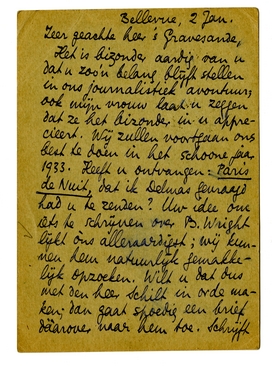 Bellevue, 2 Jan.
Zeer geachte heer 's Gravesande,
Het is bizonder aardig van u
dat u zoo'n belang blijft stellen
in ons journalistiek avontuur;
ook mijn vrouw laat u zeggen
dat ze het bizonder in u appre-
cieert. Wij zullen voortgaan ons
best te doen in het schoone jaar
1933. Heeft u ontvangen: Paris
de Nuit, dat ik Delmas gevraagd
had u te zenden? Uw idee om
iets te schrijven over B. Wright
lijkt òns alleraardigst; wij kun-
nen hem natuurlijk gemakke-
lijk opzoeken. Wilt u dat dus
met den heer Schilt in orde ma-
ken; dan gaat spoedig een brief
dáárover naar hem toe. Schrijft